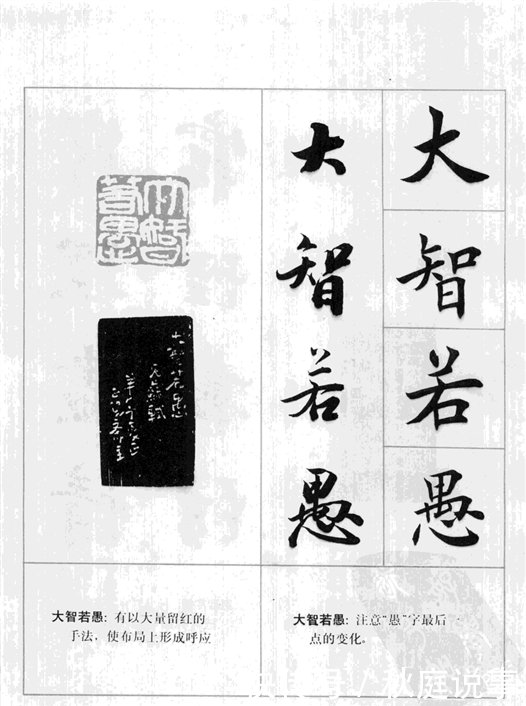 大智若愚
大智若愚
大智若愚
大智若愚
大智若愚: 有以大量留红的
手法，使布局上形成呼应
大智若愚: 注意“愚”字最后一
点的变化。
/秋庭说事